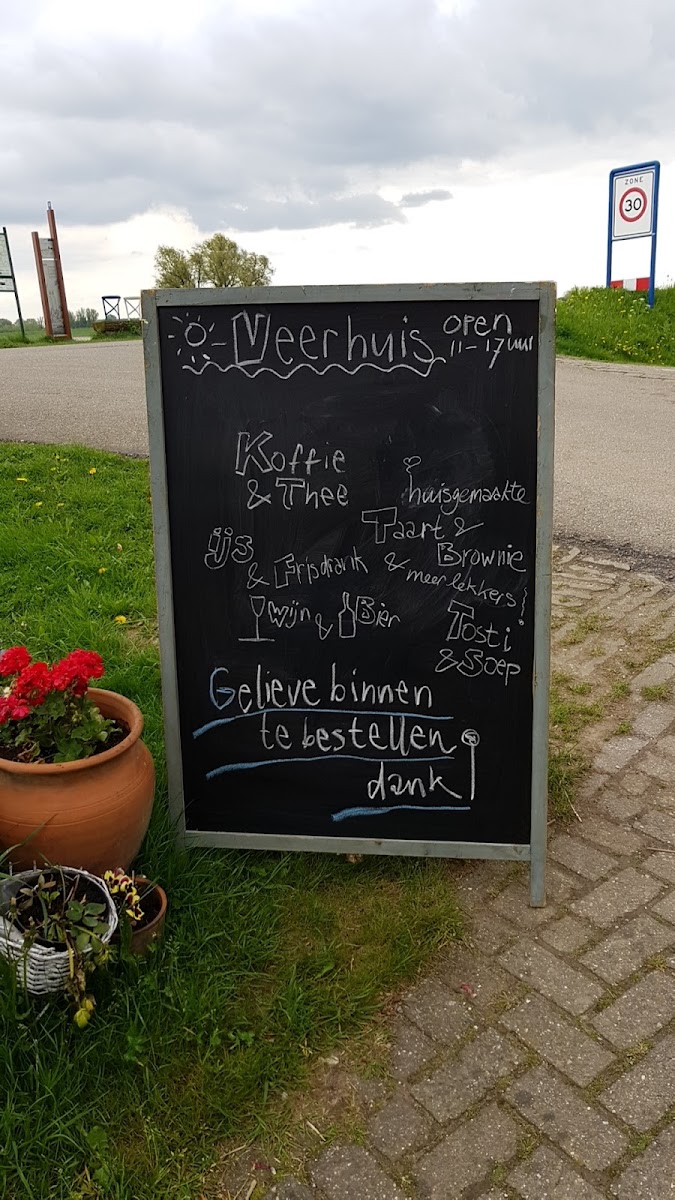 ZONE
30
Veerhuis open
11-17 uur
Koffie
& Thee
huisgemaakte
Taart &
Brownie
& meer lekkers!
ijs
& Frisdrank
wijn & Bier
Tosti
& Soep
Gelieve binnen
te bestellen
dank!